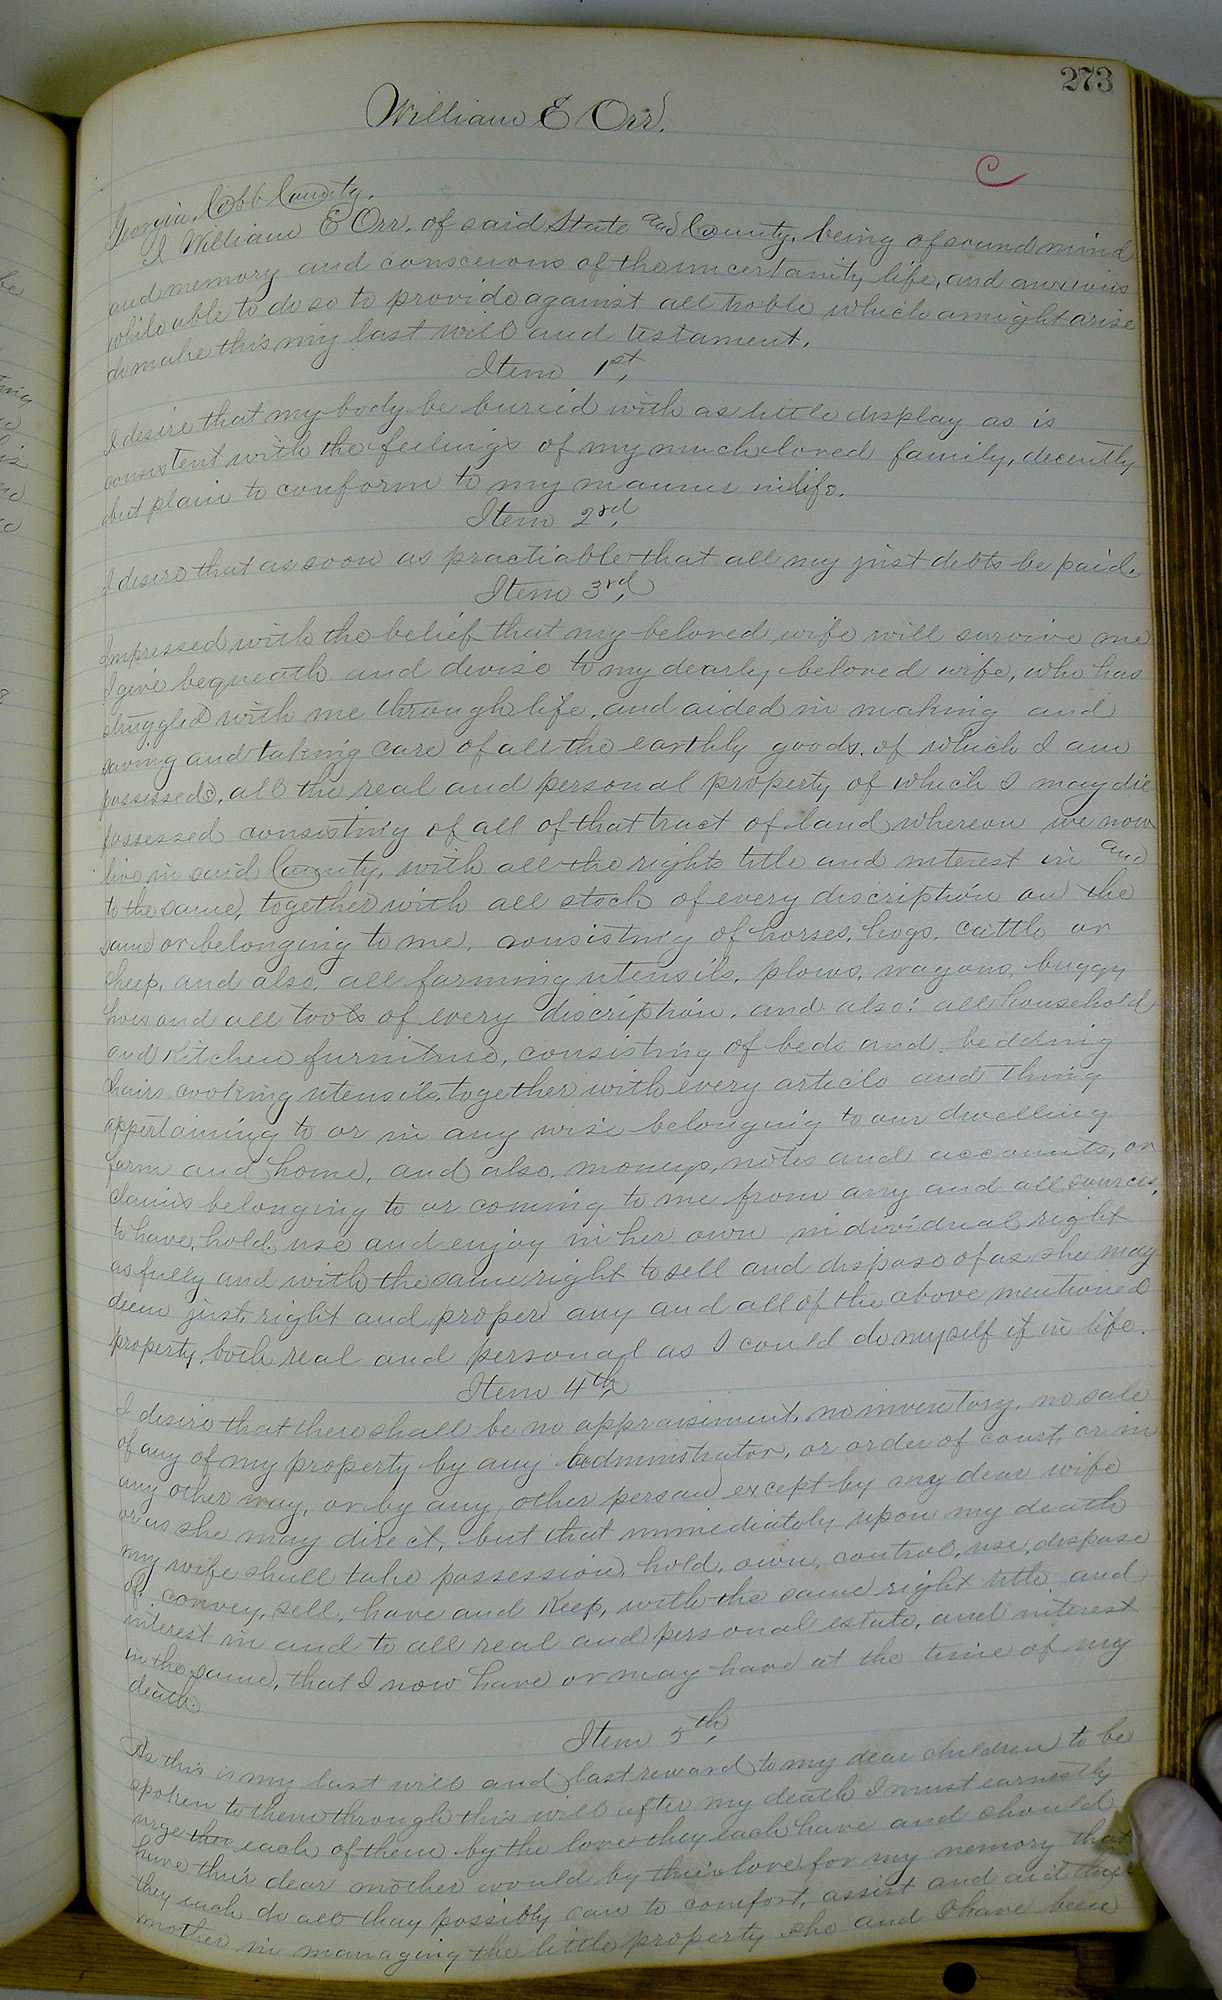 273
William E Orr.
C
Georgia, Cobb County.
I William E Orr, of said State and County, being of sound mind
and memory and conscerous of the uncertanity life, and anxious
while able to do so to provide against all troble which amight arise
do make this my last will and testament.
Item 1st,
I desire that my body be buried with as little display as is
consistent with the feelings of my much loved family, decently
but plain to conform to my manner in life.
Item 2rd,
I desire that as soon as practiable that all my just debts be paid.
Item 3rd,
Impressed with the belief that my beloved wife will survive me
I give bequeath and devise to my dearly beloved wife, who has
struggled with me through life, and aided in making and
saving and taking care of all the earthly goods, of which I am
possessed, all the real and personal property of which I may die
possessed consisting of all of that tract of land whereon we now
live in said County, with all the rights title and interest in and
to the same, together with all stock of every discription on the
same or belonging to me, consisting of horses, hogs, cattle or
sheep, and also, all farming utensils, plows, wagons, buggy
hoes and all tools of every discription, and also, all household
and Kitchen furniture, consisting of beds and bedding
chairs, cooking utensils, together with every article and thing
appertaining to or in any wise belonging to our dwelling
farm and home, and also, moneys, notes and accounts, or
claims belonging to or coming to me from any and all sources,
to have, hold, use and enjoy in her own individual right
as fully and with the same right to sell and dispose of as she may
deem just, right and proper any and all of the above mentioned
property, both real and personal as I could do myself if in life.
Item 4th
I desire that there shall be no appraisiment, no inventory, no sale
of any of my property by any administrator, or order of court, or in
any other way, or by any other person except by my dear wife
or as she may direct, but that immediately upon my death
my wife shall take possession, hold, own, control, use, dispose
of, convey, sell, have and Keep, with the same right title and
interest in and to all real and personal estate, and interest
in the same, that I now have or may have at the time of my
death.
Item 5th,
As this is my last will and last reward to my dear children to be
spoken to them through this will after my death I must earnestly
urge their each of them by the love they each have and should
have their dear mother would by their love for my memory that
they each do all thay possibly can to comfort, assist and aid their
mother in managing the little property she and I have been